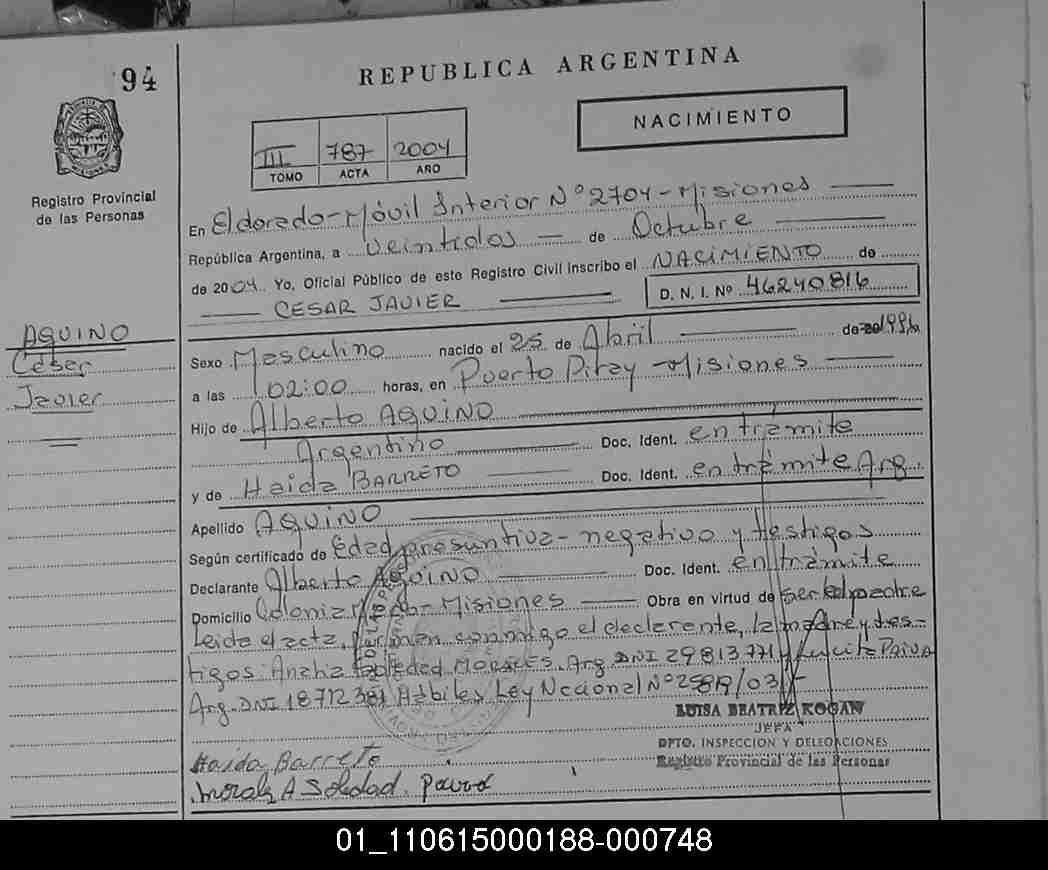 94
REPUBLICA ARGENTINA
NACIMIENTO
III 787 2004
TOMO ACTA AÑO
Registro Provincial
de las Personas
En Eldorado-Móvil Interior N° 2704-Misiones
República Argentina, a Veintidos de Octubre
de 2004. Yo, Oficial Público de este Registro Civil inscribo el NACIMIENTO de
CESAR JAVIER
D. N. I. Nº 46240816
AQUINO
César
Javier
Sexo Masculino nacido el 25 de Abril de 20
a las 02:00 horas, en Puerto Piray-Misiones
Hijo de Alberto AQUINO
Argentino Doc. Ident. en trámite
y de Haida BARRETO Doc. Ident. en trámite Arg
Apellido AQUINO
Según certificado de edad presuntiva-negativo y testigos
Declarante Alberto AQUINO Doc. Ident. en trámite
Domicilio Colonia Misiones Obra en virtud de ser el padre
Leida el acta, firman conmigo el declarante, la madre y tes-
tigos: Soledad MORALES. Arg. DNI 29813771 y PAIVA
Arg. DNI 18712381 Hábiles Ley Nacional Nº 25819/03
LUISA BEATRIZ KOGAN
JEFA
DPTO. INSPECCION Y DELEGACIONES
Registro Provincial de las Personas
Haida Barreto
Morales A Soledad. Paiva
01_110615000188-000748